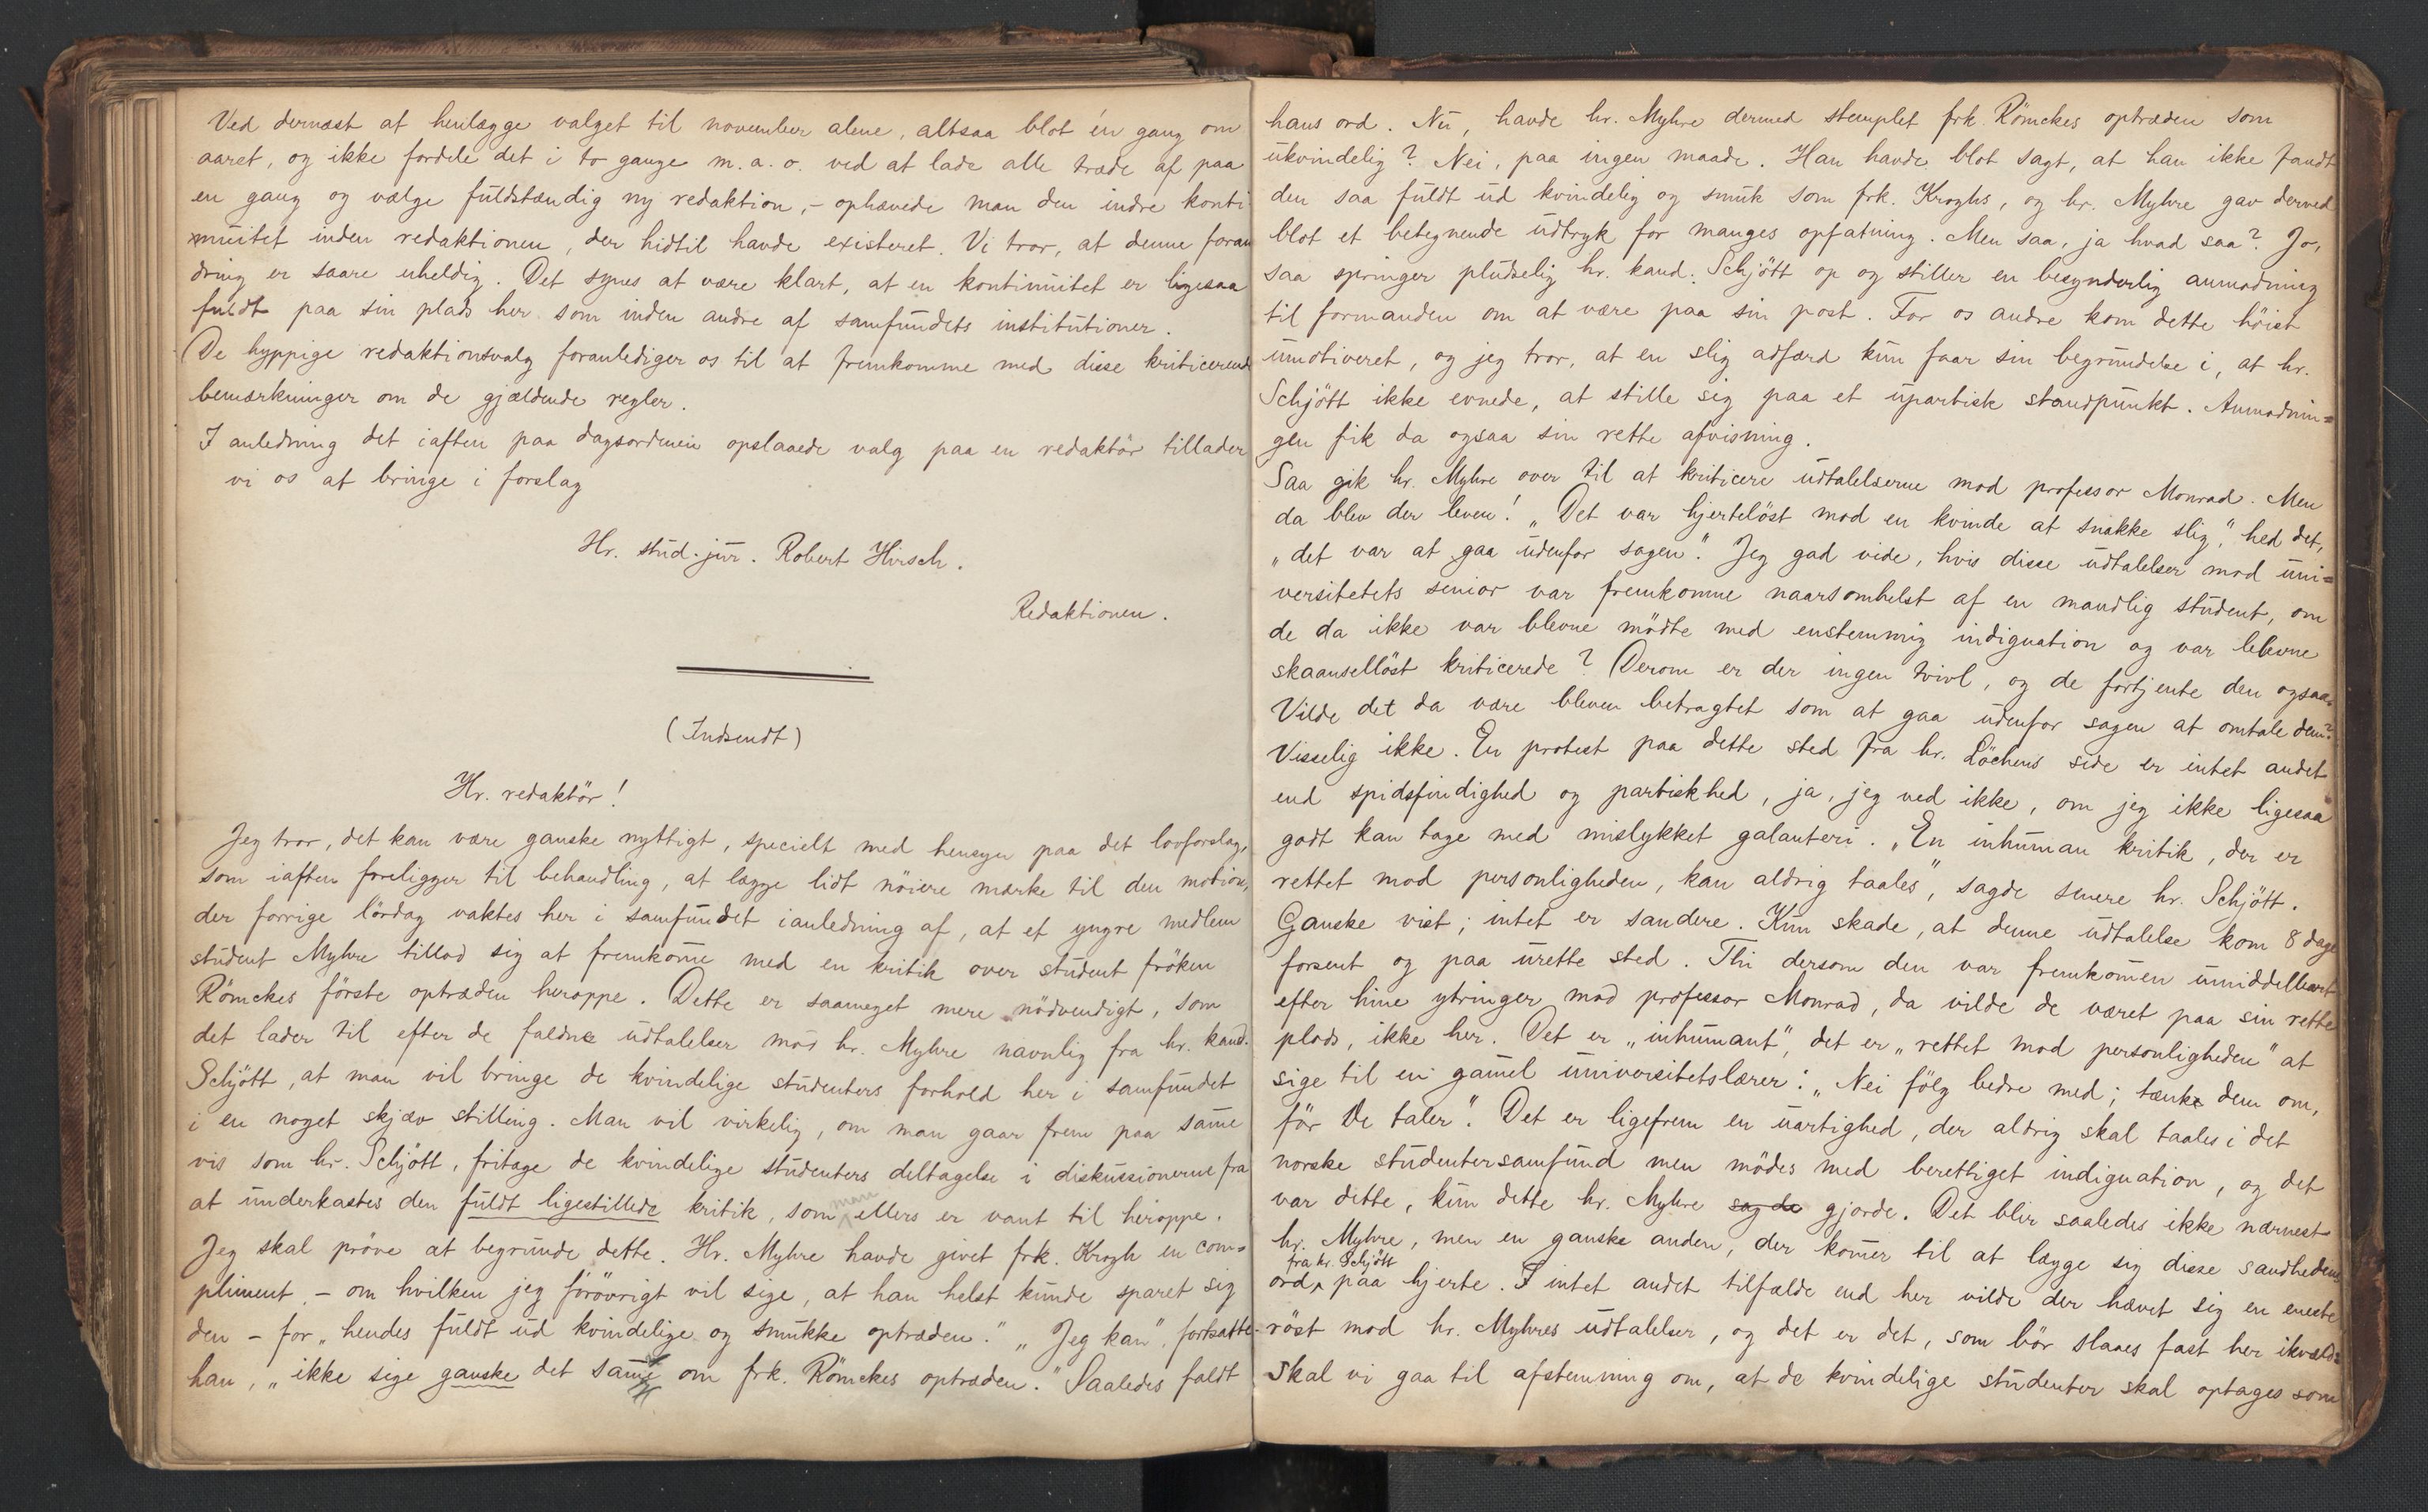 Ved dernæst at henlægge valget til november alene, altsaa blot én gang om
aaret, og ikke fordele det i to gange m. a. o. ved at lade alle træde af paa
en gang og vælge fuldstændig ny redaktion, – ophævede man den indre konti-
nuitet inden redaktionen, der hidtil havde existeret. Vi tror, at denne foran
dring er saare uheldig. Det synes at være klart, at en kontinuitet er ligesaa
fuldt paa sin plads her som inden andre af samfundets institutioner.
De hyppige redaktionsvalg foranlediger os til at fremkomme med disse kriticerende
bemærkninger om de gjældende regler.
I anledning det iaften paa dagsordenen opslaaede valg paa en redaktör tillader
vi os at bringe i forslag
Hr. stud. jur. Robert Hirsch.
Redaktionen.
(Indsendt)
Hr. redaktör!
Jeg tror, det kan være ganske nyttigt, specielt med hensyn paa det lovforslag,
som iaften foreligger til behandling, at lægge lidt nöiere mærke til den motion,
der forrige lördag vaktes her i samfundet i anledning af, at et yngre medlem
student Myhre tillod sig at fremkomme med en kritik over student fröken
Römckes förste optræden heroppe. Dette er saameget mere nödvendigt, som
det lader til efter de faldne udtalelser mod hr. Myhre navnlig fra hr. kand.
Schjött, at man vil bringe de kvindelige studenters forhold her i samfundet
i en noget skjæv stilling. Man vil virkelig, om man gaar frem paa samme
vis som hr. Schjött, fritage de kvindelige studenters deltagelse i diskussionerne fra
at underkastes den fuldt ligestillede kritik, som man ellers er vant til heroppe.
Jeg skal pröve at begrunde dette. Hr. Myhre havde givet frk. Krogh en com=
pliment – om hvilken jeg forövrigt vil sige, at han helst kunde sparet sig
den – for „hendes fuldt ud kvindelige og smukke optræden." „Jeg kan", fortsatte
han, „ikke sige ganske det samme om frk. Römckes optræden." Saaledes faldt
hans ord. Nu, havde hr. Myhre dermed stemplet frk. Römckes optræden som
ukvindelig? Nei, paa ingen maade. Han havde blot sagt, at han ikke fandt
den saa fuldt ud kvindelig og smuk som frk. Kroghs, og hr. Myhre gav derved
blot et betegnende udtryk for manges opfatning. Men saa, ja hvad saa? Jo,
saa springer pludselig hr. kand. Schjött op og stiller en besynderlig anmodning
til formanden om at være paa sin post. For os andre kom dette höist
umotiveret, og jeg tror, at en slig adfærd kun faar sin begrundelse i, at hr.
Schjött ikke evnede, at stille sig paa et upartisk standpunkt. Anmodnin=
gen fik da ogsaa sin rette afvisning.
Saa gik hr. Myhre over til at kriticere udtalelserne mod professor Monrad. Men
da blev der leven! „Det var hjertelöst mod en kvinde at snakke slig," hed det,
„det var at gaa udenfor sagen." Jeg gad vide, hvis disse udtalelser mod uni=
versitetets senior var fremkomne naarsomhelst af en mandlig student, om
de da ikke var blevne mödte med enstemmig indignation og var blevne
skaanselløst kriticerede? Derom er der ingen tvivl, og de fortjente den ogsaa.
Vilde det da være bleven betragtet som at gaa udenfor sagen at omtale dem?
Visselig ikke. En protest paa dette sted fra hr. Löchens side er intet andet
end spidsfindighed og partiskhed, ja, jeg ved ikke, om jeg ikke ligesaa
godt kan tage med mislykket galanteri. „En inhuman kritik, der er
rettet mod personligheden, kan aldrig taales", sagde senere hr. Schjött.
Ganske vist; intet er sandere. Kun skade, at denne udtalelse kom 8 dage
forsent og paa urette sted. Thi dersom den var fremkommen umiddelbart
efter hine ytringer mod professor Monrad, da vilde de været paa sin rette
plads, ikke her. Det er „inhumant", det er „rettet mod personligheden" at
sige til en gammel universitetslærer: „Nei fölg bedre med; tænk dem om,
för De taler". Det er ligefrem en uartighed, der aldrig skal taales i det
norske studentersamfund men mödes med berettiget indignation, og det
var dette, kun dette hr. Myhre sagde gjorde. Det blir saaledes ikke nærmest
hr. Myhre, men en ganske anden, der kommer til at lægge sig disse sandhedens
ord fra hr. Schjött paa hjerte. I intet andet tilfælde end her vilde der hævet sig en eneste
röst mod hr. Myhres udtalelser, og det er det, som bör slaaes fast her ikvæld=
Skal vi gaa til afstemning om, at de kvindelige studenter skal optages som